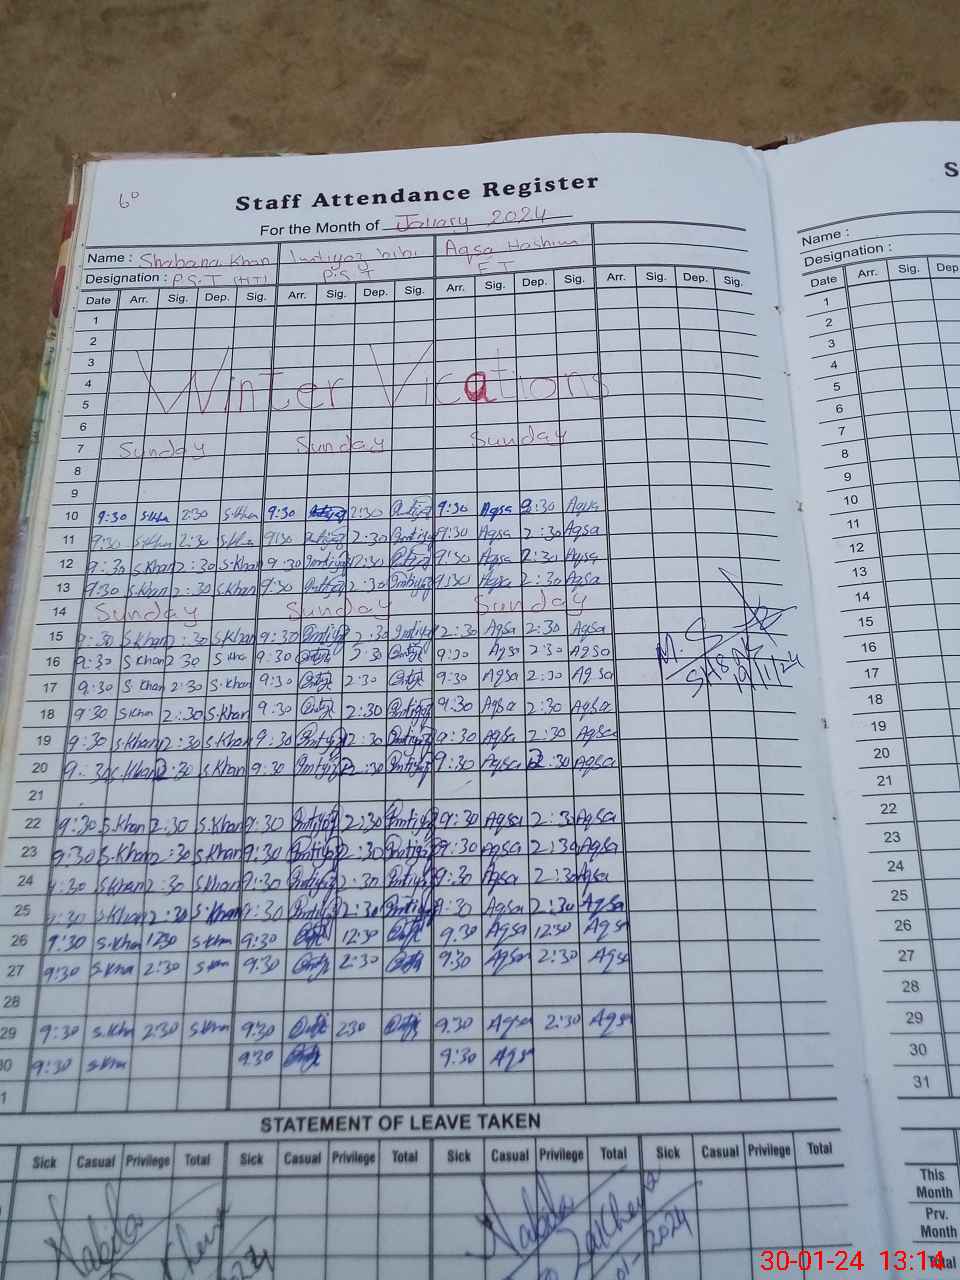 60
Staff Attendance Register
For the Month of January 2024
Name : Shabana Khan Imtiyaz bibi Aqsa Hashim
Designation : P.S.T (HT) P.S.T E T
Date Arr. Sig. Dep. Sig. Arr. Sig. Dep. Sig. Arr. Sig. Dep. Sig. Arr. Sig. Dep. Sig.
1
2
3
4 Winter Vications
5
6
7 Sunday Sunday Sunday
8
9
10 9:30 S.Kha 2:30 S.Kha 9:30 2:30 Imtiyaz 9:30 Aqsa 2:30 Aqsa
11 9:30 S.Kha 2:30 S.Kha 9:30 Imtiyaz 2:30 Imtiyaz 9:30 Aqsa 2:30 Aqsa
12 9:30 S.Khan 2:30 S.Khan 9:30 Imtiyaz 2:30 Imtiyaz 9:30 Aqsa 2:30 Aqsa
13 9:30 S.Khan 2:30 S.Khan 9:30 Imtiyaz 2:30 Imtiyaz 9:30 Aqsa 2:30 Aqsa
14 Sunday Sunday Sunday
15 9:30 S.Khan 2:30 S.Khan 9:30 Imtiyaz 2:30 Imtiyaz 2:30 Aqsa 2:30 Aqsa
16 9:30 S.Khan 2:30 S.Kha 9:30 2:30 9:30 Aqsa 2:30 Aqsa
17 9:30 S.Khan 2:30 S.Khan 9:30 2:30 9:30 Aqsa 2:30 Aqsa
18 9:30 S.Khan 2:30 S.Khan 9:30 2:30 Imtiyaz 9:30 Aqsa 2:30 Aqsa
19 9:30 S.Khan 2:30 S.Khan 9:30 Imtiyaz 2:30 Imtiyaz 9:30 Aqsa 2:30 Aqsa
20 9:30 S.Khan 2:30 S.Khan 9:30 Imtiyaz 2:30 Imtiyaz 9:30 Aqsa 2:30 Aqsa
21
22 9:30 S.Khan 2:30 S.Khan 9:30 Imtiyaz 2:30 Imtiyaz 9:30 Aqsa 2:30 Aqsa
23 9:30 S.Khan 2:30 S.Khan 9:30 Imtiyaz 2:30 Imtiyaz 9:30 Aqsa 2:30 Aqsa
24 9:30 S.Khan 2:30 S.Khan 9:30 Imtiyaz 2:30 Imtiyaz 9:30 Aqsa 2:30 Aqsa
25 9:30 S.Khan 2:30 S.Khan 9:30 Imtiyaz 2:30 Imtiyaz 9:30 Aqsa 2:30 Aqsa
26 9:30 S.Khan 12:30 S.Khan 9:30 12:30 9:30 Aqsa 12:30 Aqsa
27 9:30 S.Kha 2:30 S.Khan 9:30 2:30 9:30 Aqsa 2:30 Aqsa
28
29 9:30 S.Kha 2:30 S.Kha 9:30 230 9:30 Aqsa 2:30 Aqsa
30 9:30 S.Kha 9:30 9:30 Aqsa
1
M. S
19/1/24
STATEMENT OF LEAVE TAKEN
Sick Casual Privilege Total Sick Casual Privilege Total Sick Casual Privilege Total Sick Casual Privilege Total
Nabila Nabila
2024 01-2024
S
Name :
Designation :
Date Arr. Sig. Dep.
1
2
3
4
5
6
7
8
9
10
11
12
13
14
15
16
17
18
19
20
21
22
23
24
25
26
27
28
29
30
31
This Month
Prv. Month
Total
30-01-24 13:14